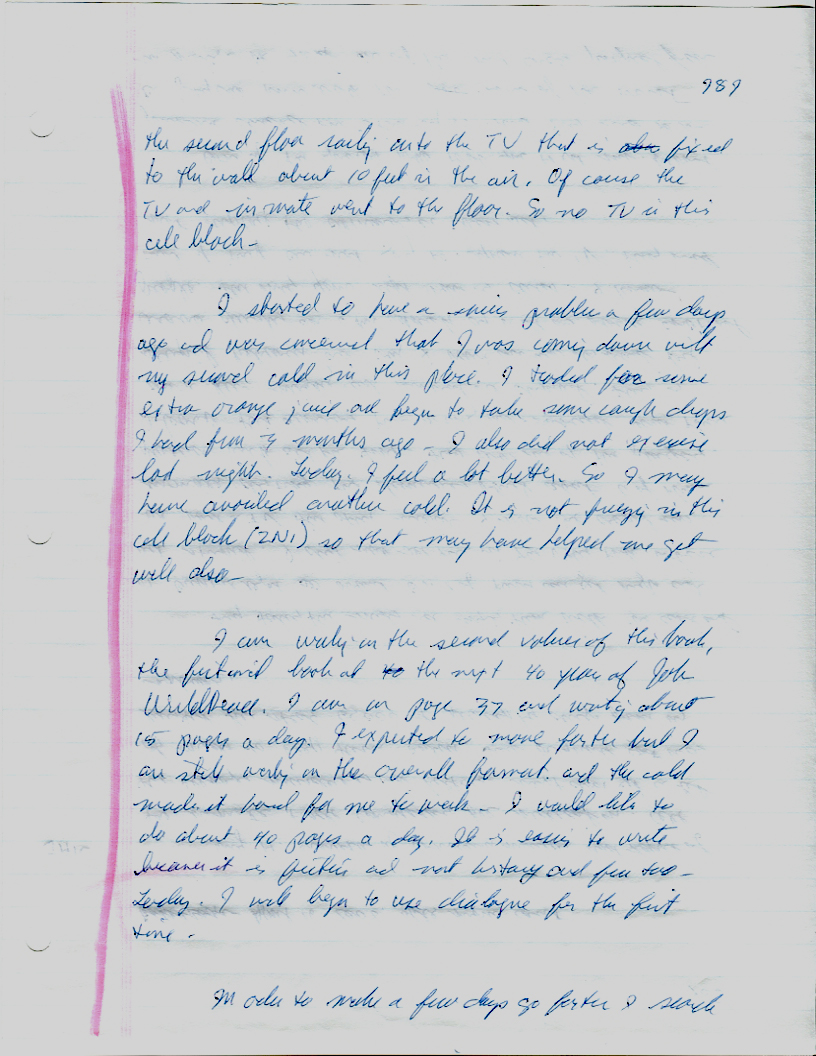 989
the second floor onto the TV that is fixed
to the wall about 10 feet in the air. Of couse the
TV and inmate went to the floor. So no TV in this
cell block-
I started to have a sinus problem a few days
ago and was concerned that I was coming down with
my second cold in this place. I traded for some
extra orange juice and began to take some cough drops
I had from 3 months ago - I also did not exercise
last night. Today. I feel a lot better. So I may
have avoided another cold. It is not freezing in this
cell block (2N1) so that may have helped me get
well also-
I am working on the second volume of this book,
the fictional book at the next 40 years of John
WorldPeace. I am on page 37 and writing about
15 pages a day. I expected to move faster but I
am still working on the overall format. and the cold
made it hard for me to work - I would like to
do about 40 pages a day. It is easier to write
because it is fiction and not history and fun too-
Today. I will begin to use dialogue for the first
time.
In order to make a few days go faster I search